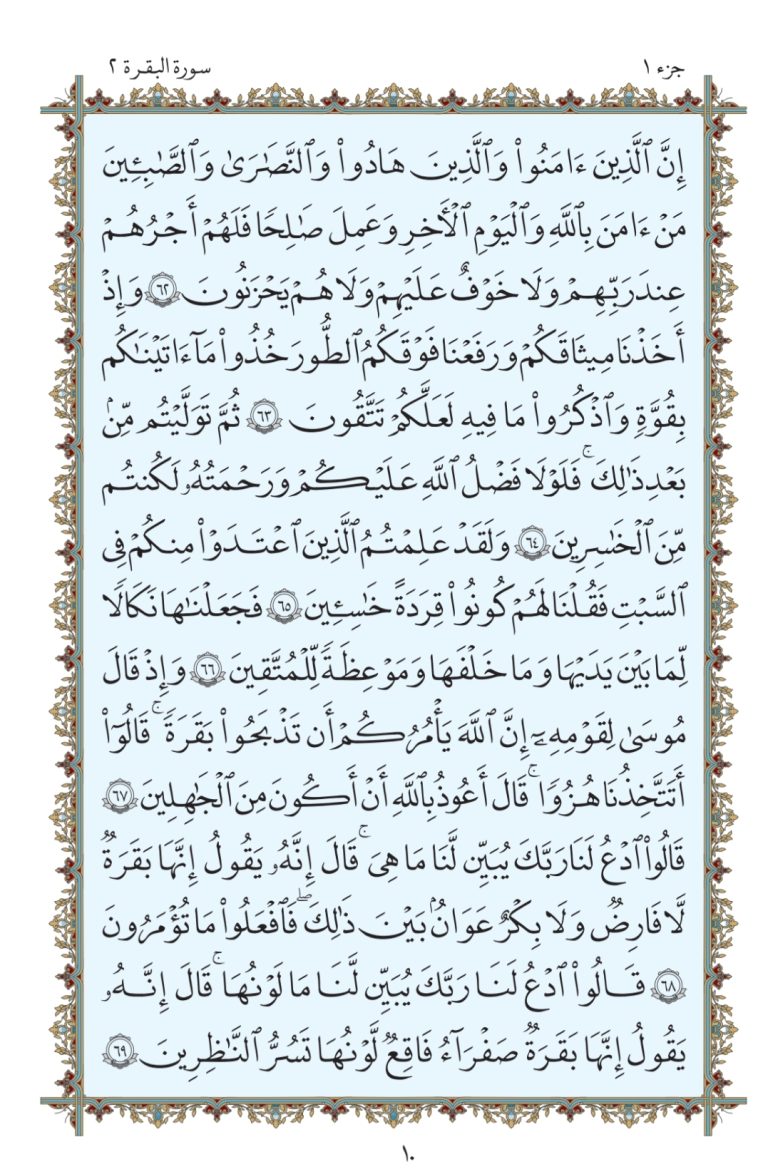 جزء ١
سورة البقرة ٢
إِنَّ ٱلَّذِينَ ءَامَنُوا۟ وَٱلَّذِينَ هَادُوا۟ وَٱلنَّصَٰرَىٰ وَٱلصَّٰبِـِٔينَ
مَنْ ءَامَنَ بِٱللَّهِ وَٱلْيَوْمِ ٱلْـَٔاخِرِ وَعَمِلَ صَٰلِحًا فَلَهُمْ أَجْرُهُمْ
عِندَ رَبِّهِمْ وَلَا خَوْفٌ عَلَيْهِمْ وَلَا هُمْ يَحْزَنُونَ ٦٢ وَإِذْ
أَخَذْنَا مِيثَٰقَكُمْ وَرَفَعْنَا فَوْقَكُمُ ٱلطُّورَ خُذُوا۟ مَآ ءَاتَيْنَٰكُم
بِقُوَّةٍ وَٱذْكُرُوا۟ مَا فِيهِ لَعَلَّكُمْ تَتَّقُونَ ٦٣ ثُمَّ تَوَلَّيْتُم مِّنۢ
بَعْدِ ذَٰلِكَ ۖ فَلَوْلَا فَضْلُ ٱللَّهِ عَلَيْكُمْ وَرَحْمَتُهُۥ لَكُنتُم
مِّنَ ٱلْخَٰسِرِينَ ٦٤ وَلَقَدْ عَلِمْتُمُ ٱلَّذِينَ ٱعْتَدَوْا۟ مِنكُمْ فِى
ٱلسَّبْتِ فَقُلْنَا لَهُمْ كُونُوا۟ قِرَدَةً خَٰسِـِٔينَ ٦٥ فَجَعَلْنَٰهَا نَكَٰلًا
لِّمَا بَيْنَ يَدَيْهَا وَمَا خَلْفَهَا وَمَوْعِظَةً لِّلْمُتَّقِينَ ٦٦ وَإِذْ قَالَ
مُوسَىٰ لِقَوْمِهِۦٓ إِنَّ ٱللَّهَ يَأْمُرُكُمْ أَن تَذْبَحُوا۟ بَقَرَةً ۖ قَالُوٓا۟
أَتَتَّخِذُنَا هُزُوًا ۖ قَالَ أَعُوذُ بِٱللَّهِ أَنْ أَكُونَ مِنَ ٱلْجَٰهِلِينَ ٦٧
قَالُوا۟ ٱدْعُ لَنَا رَبَّكَ يُبَيِّن لَّنَا مَا هِىَ ۚ قَالَ إِنَّهُۥ يَقُولُ إِنَّهَا بَقَرَةٌ
لَّا فَارِضٌ وَلَا بِكْرٌ عَوَانٌۢ بَيْنَ ذَٰلِكَ ۖ فَٱفْعَلُوا۟ مَا تُؤْمَرُونَ
٦٨ قَالُوا۟ ٱدْعُ لَنَا رَبَّكَ يُبَيِّن لَّنَا مَا لَوْنُهَا ۚ قَالَ إِنَّهُۥ
يَقُولُ إِنَّهَا بَقَرَةٌ صَفْرَآءُ فَاقِعٌ لَّوْنُهَا تَسُرُّ ٱلنَّٰظِرِينَ ٦٩
١٠